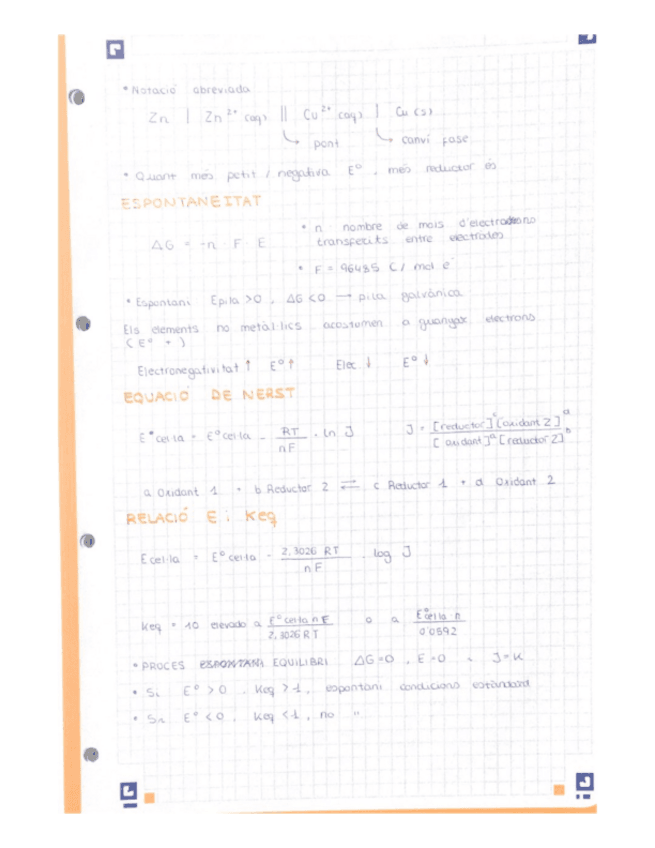 • Notació abreviada
Zn | Zn²⁺ (aq) || Cu²⁺ (aq) | Cu (s)
↳ pont ↳ canvi fase
• Quant més petit / negativa E⁰, més reductor és
ESPONTANEITAT
ΔG = -n · F · E
• n nombre de mols d'electrons
transferits entre electrodes
• F = 96485 C / mol e⁻
• Espontani Epila >0, ΔG <0 → pila galvànica
Els elements no metàl·lics acostumen a guanyar electrons
(E⁰ +)
Electronegativitat ↑ E⁰ ↑ Elec ↓ E⁰ ↓
EQUACIÓ DE NERST
E°cel·la = E⁰cel·la - RT / nF · ln J J = [reductor]ᶜ[oxidant 2]ᵈ / [oxidant]ᵃ[reductor 2]ᵇ
a Oxidant 1 + b Reductor 2 ⇄ c Reductor 1 + d Oxidant 2
RELACIÓ E i Keq
Ecel·la = E⁰cel·la - 2,3026 RT / nF · log J
Keq = 10 elevado a E⁰cel·la n F / 2,3026 R T o a E⁰cel·la n / 0'0592
• PROCES ESPONTANI EQUILIBRI ΔG=0, E=0, J=K
• Si E⁰ > 0, Keq > 1, espontani condicions estàndard
• Si E⁰ < 0, Keq < 1, no "